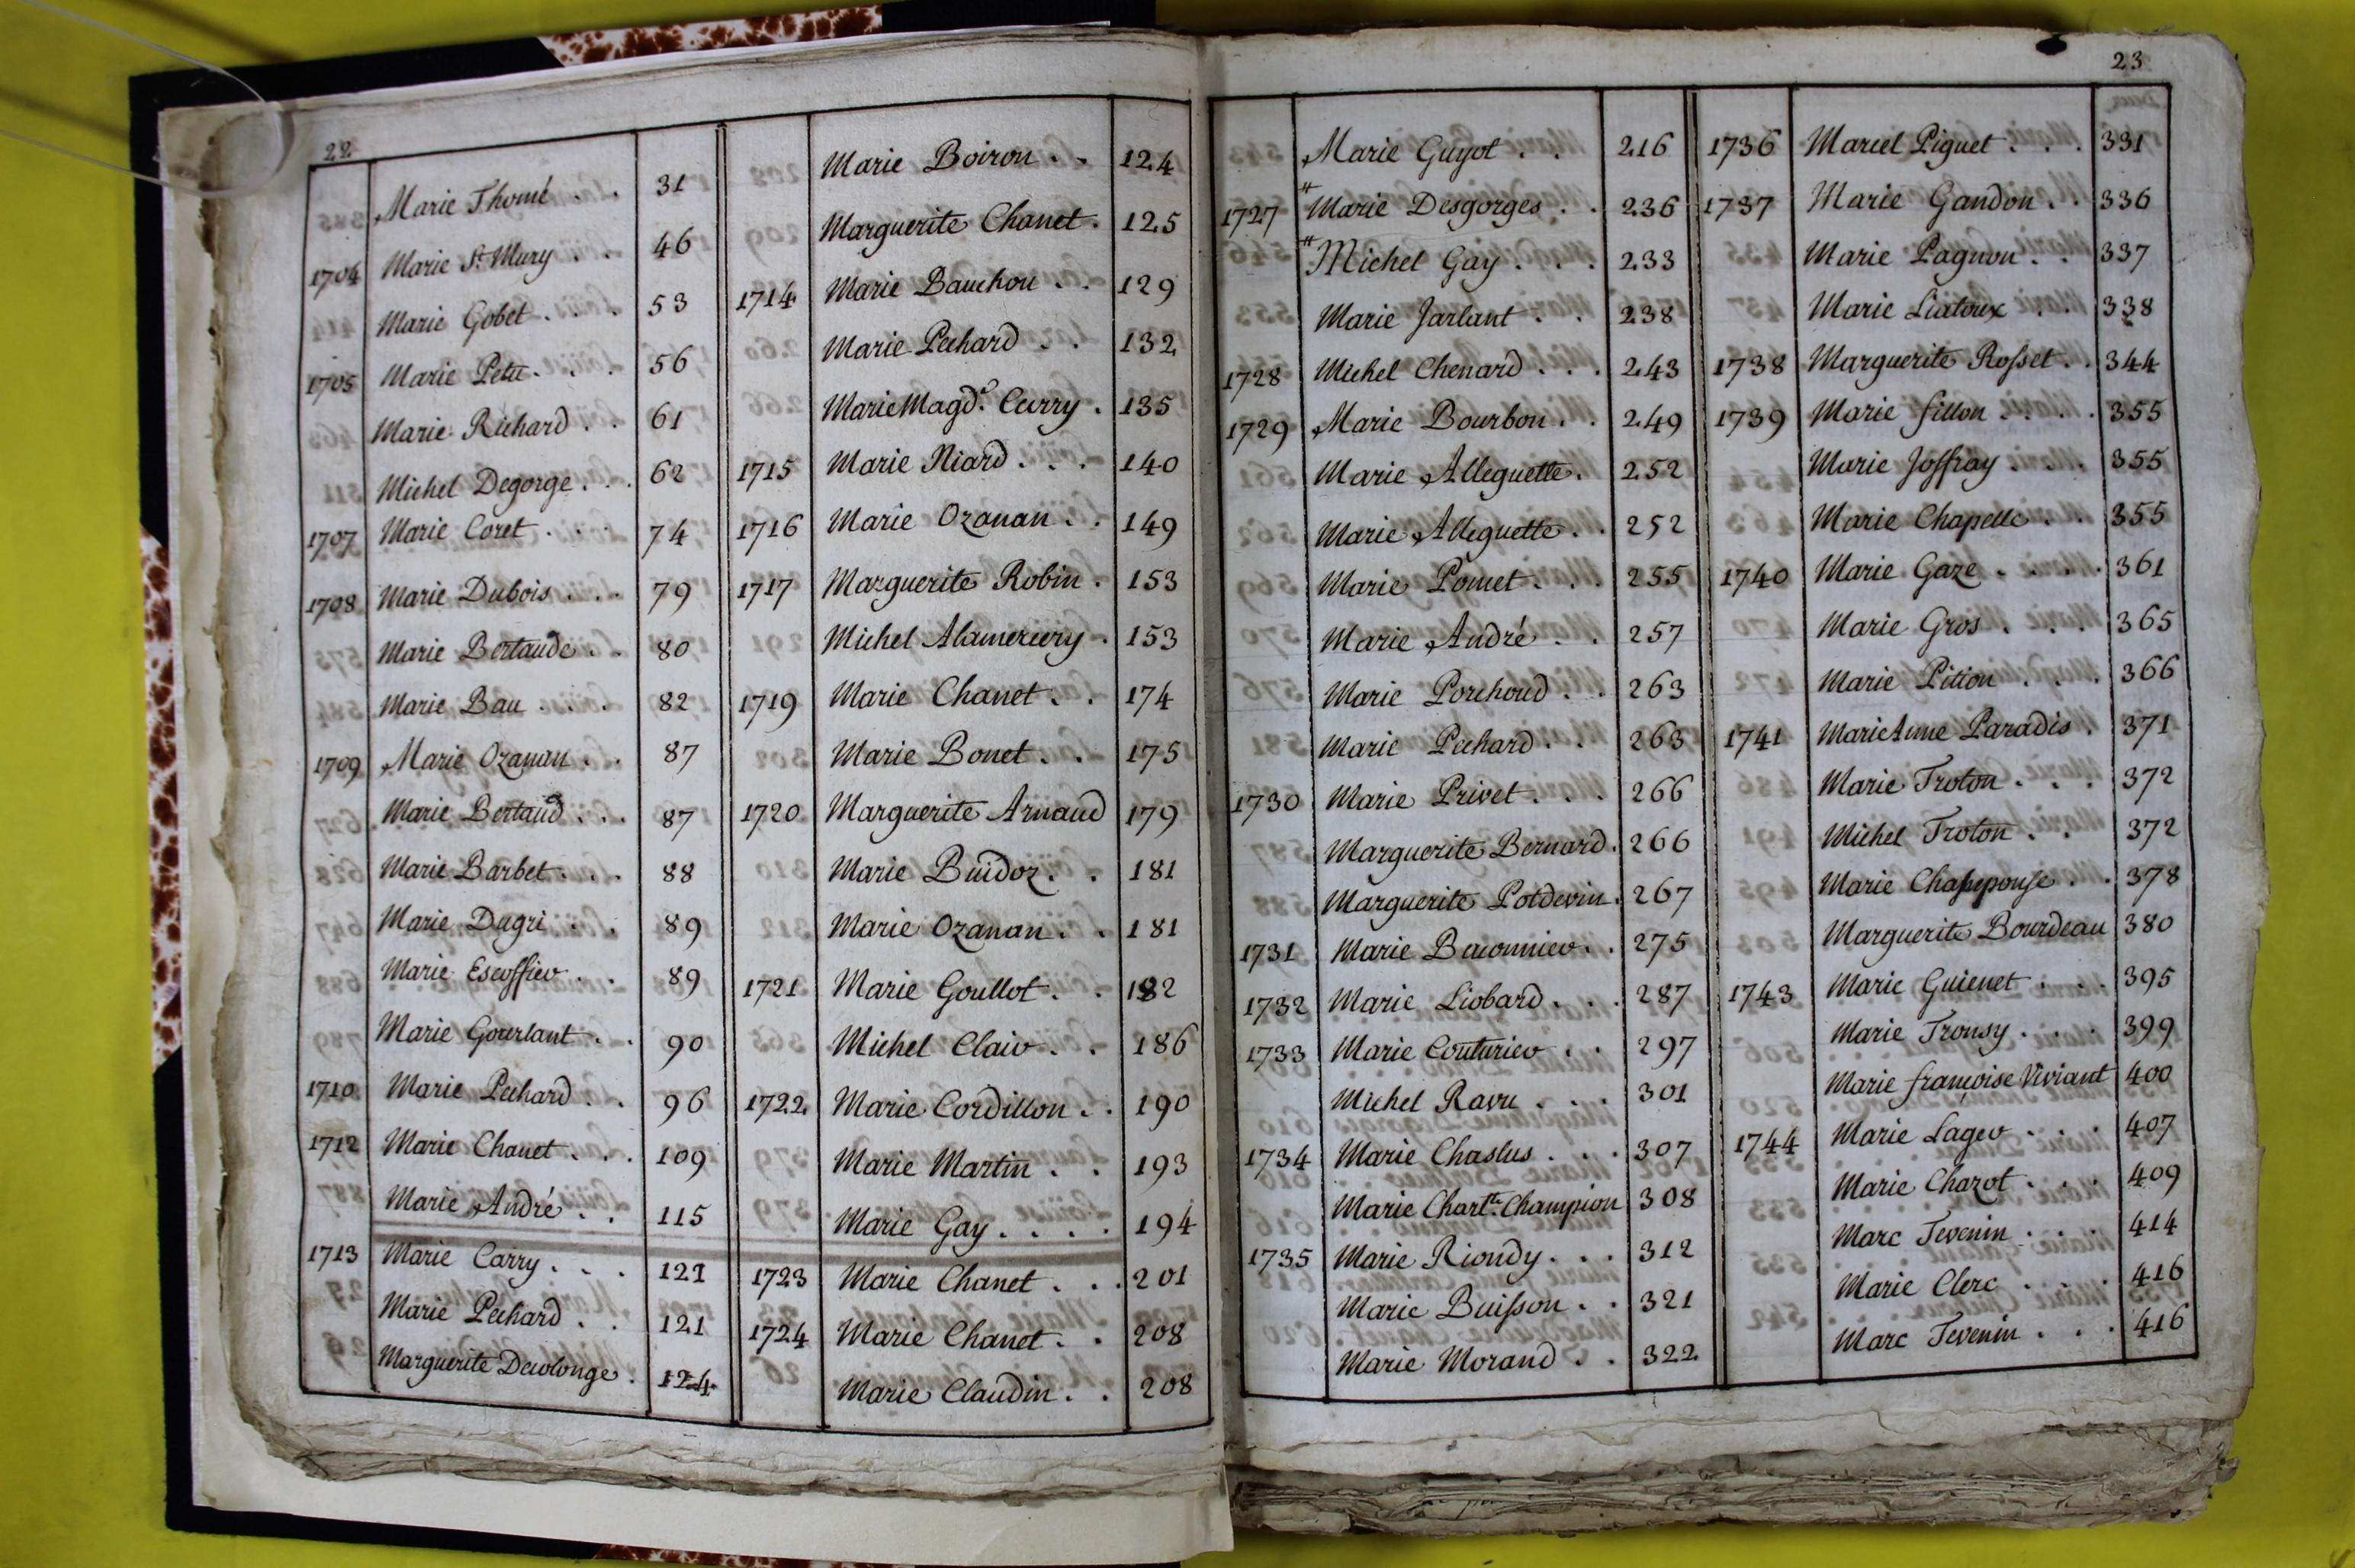 22
Marie Thomé . . 31
1704 Marie St. Mury . . 46
Marie Gobet . . . 53
1705 Marie Petit . . . 56
Marie Richard . . 61
Michel Degorge . . . 62
1707 Marie Coret . . . 74
1708 Marie Dubois . . . 79
Marie Bertaude . . 80
Marie Bau . . . 82
1709 Marie Ozanan . . 87
Marie Bertaud . . . 87
Marie Barbet . . . 88
Marie Dagri . . . 89
Marie Escoffier . . 89
Marie Gourlant . . 90
1710 Marie Pechard . . 96
1712 Marie Chanet . . . 109
Marie André . . 115
1713 Marie Carry . . . 121
Marie Pechard . . 121
Marguerite Decolonge . 124
Marie Boiron . . 124
Marguerite Chanet . 125
1714 Marie Bauchou . . 129
Marie Pechard . . 132
Marie Magd.e Curry . 135
1715 Marie Niard . . . 140
1716 Marie Ozanan . . 149
1717 Marguerite Robin . 153
Michel Alamercery . 153
1719 Marie Chanet . . 174
Marie Bonet . . 175
1720 Marguerite Arnaud 179
Marie Buidoz . . 181
Marie Ozanan . . 181
1721 Marie Goullot . . 182
Michel Clair . . 186
1722 Marie Cordillon . . 190
Marie Martin . . 193
Marie Gay . . . . 194
1723 Marie Chanet . . . 201
1724 Marie Chanet . . 208
Marie Claudin . . 208
23
Marie Guyot . . 216
1727 Marie Desgorges . . 236
Michel Gay . . . 233
Marie Jarlant . . 238
1728 Michel Chenard . . . 243
1729 Marie Bourbon . . 249
Marie Alleguette . 252
Marie Alleguette . . 252
Marie Pomet . . . 255
Marie André . . 257
Marie Porchoud . . 263
Marie Pechard . . 263
1730 Marie Privet . . . 266
Marguerite Bernard . 266
Marguerite Potdevin . 267
1731 Marie Baconnier . . 275
1732 Marie Liobard . . . 287
1733 Marie Couturier . . 297
Michel Ravu . . . 301
1734 Marie Chaslus . . . 307
Marie Charl.te Champion 308
1735 Marie Rioudy . . . 312
Marie Buisson . . 321
Marie Morand . . 322
1736 Marcel Piguet . . . 331
1737 Marie Gandon . . 336
Marie Pagnon . . 337
Marie Liatoux . . 338
1738 Marguerite Rosset . . 344
1739 Marie fillon . . . . 355
Marie Joffray . . . 355
Marie Chapelle . . 355
1740 Marie Gaze . . . . 361
Marie Gros . . . 365
Marie Pition . . . 366
1741 Marie Anne Paradis . 371
Marie Troton . . . 372
Michel Troton . . 372
Marie Chassepouse . . 378
Marguerite Bourdeau 380
1743 Marie Guienet . . . 395
Marie Trousy . . . 399
Marie françoise Viviant 400
1744 Marie Lager . . . 407
Marie Charot . . . 409
Marc Tevenin . . . 414
Marie Clerc . . . 416
Marc Tevenin . . . 416